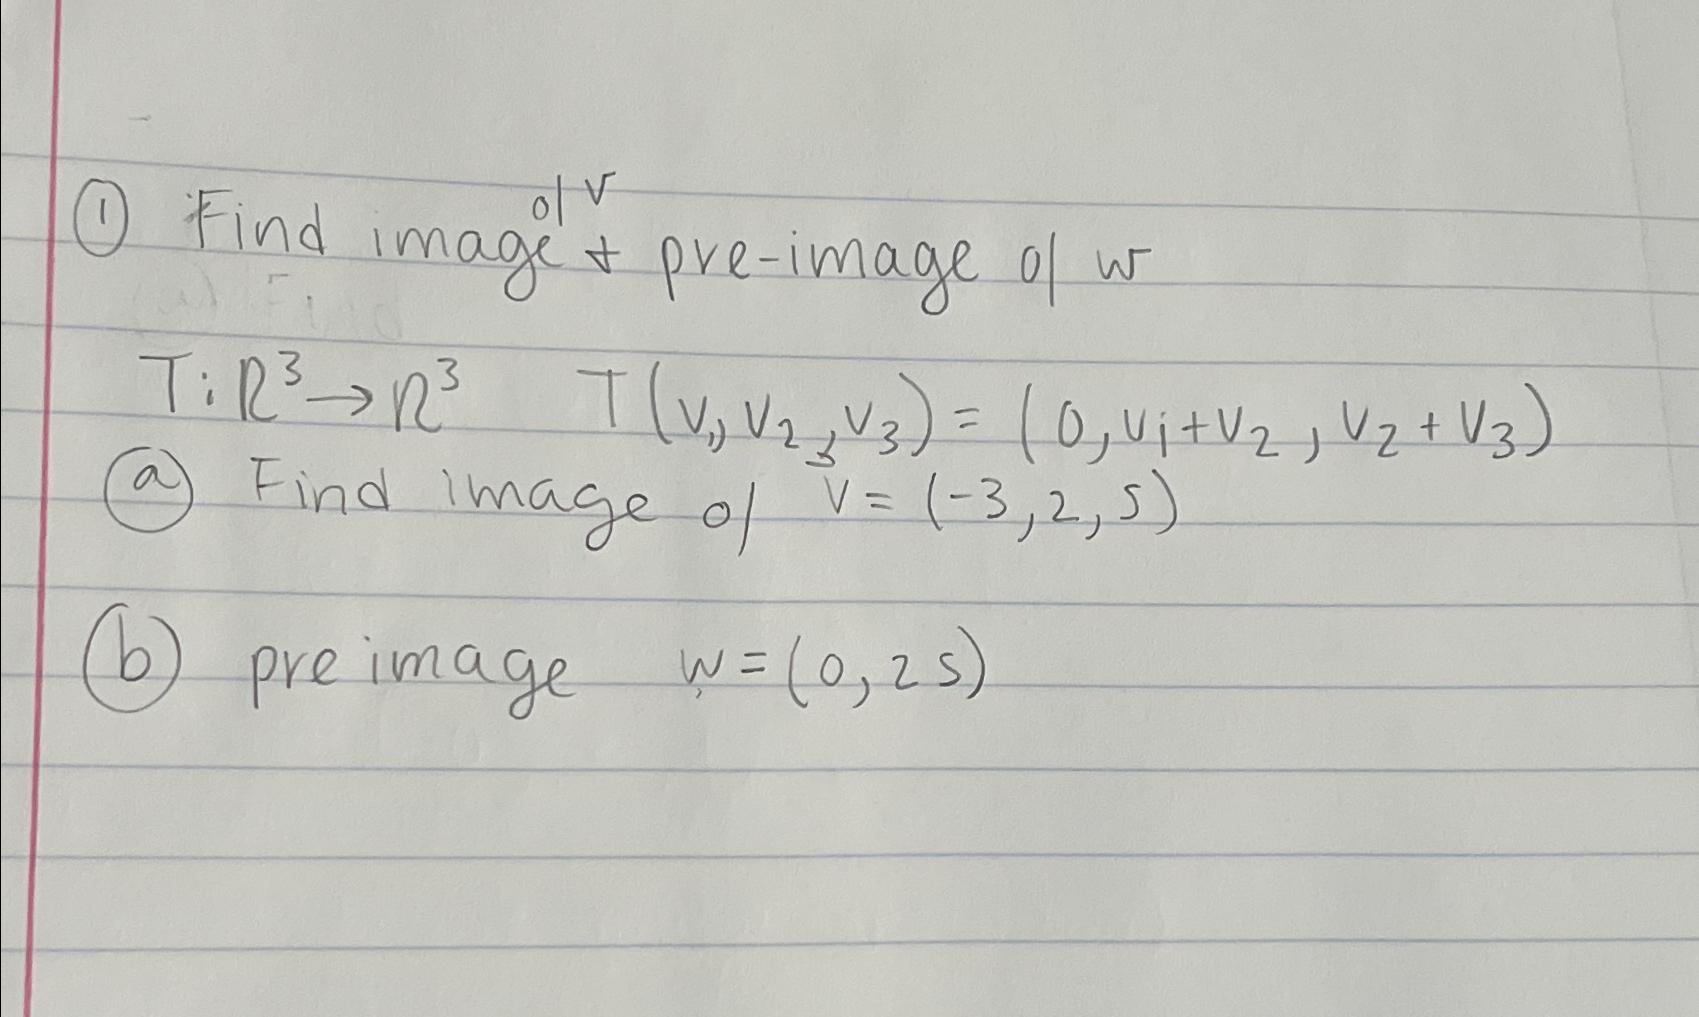 ① Find image of v + pre-image of w
T: R³ → R³ T(v₁, v₂, v₃) = (0, v₁+v₂, v₂+v₃)
ⓐ Find image of v = (-3, 2, 5)
ⓑ preimage w = (0, 2 5)